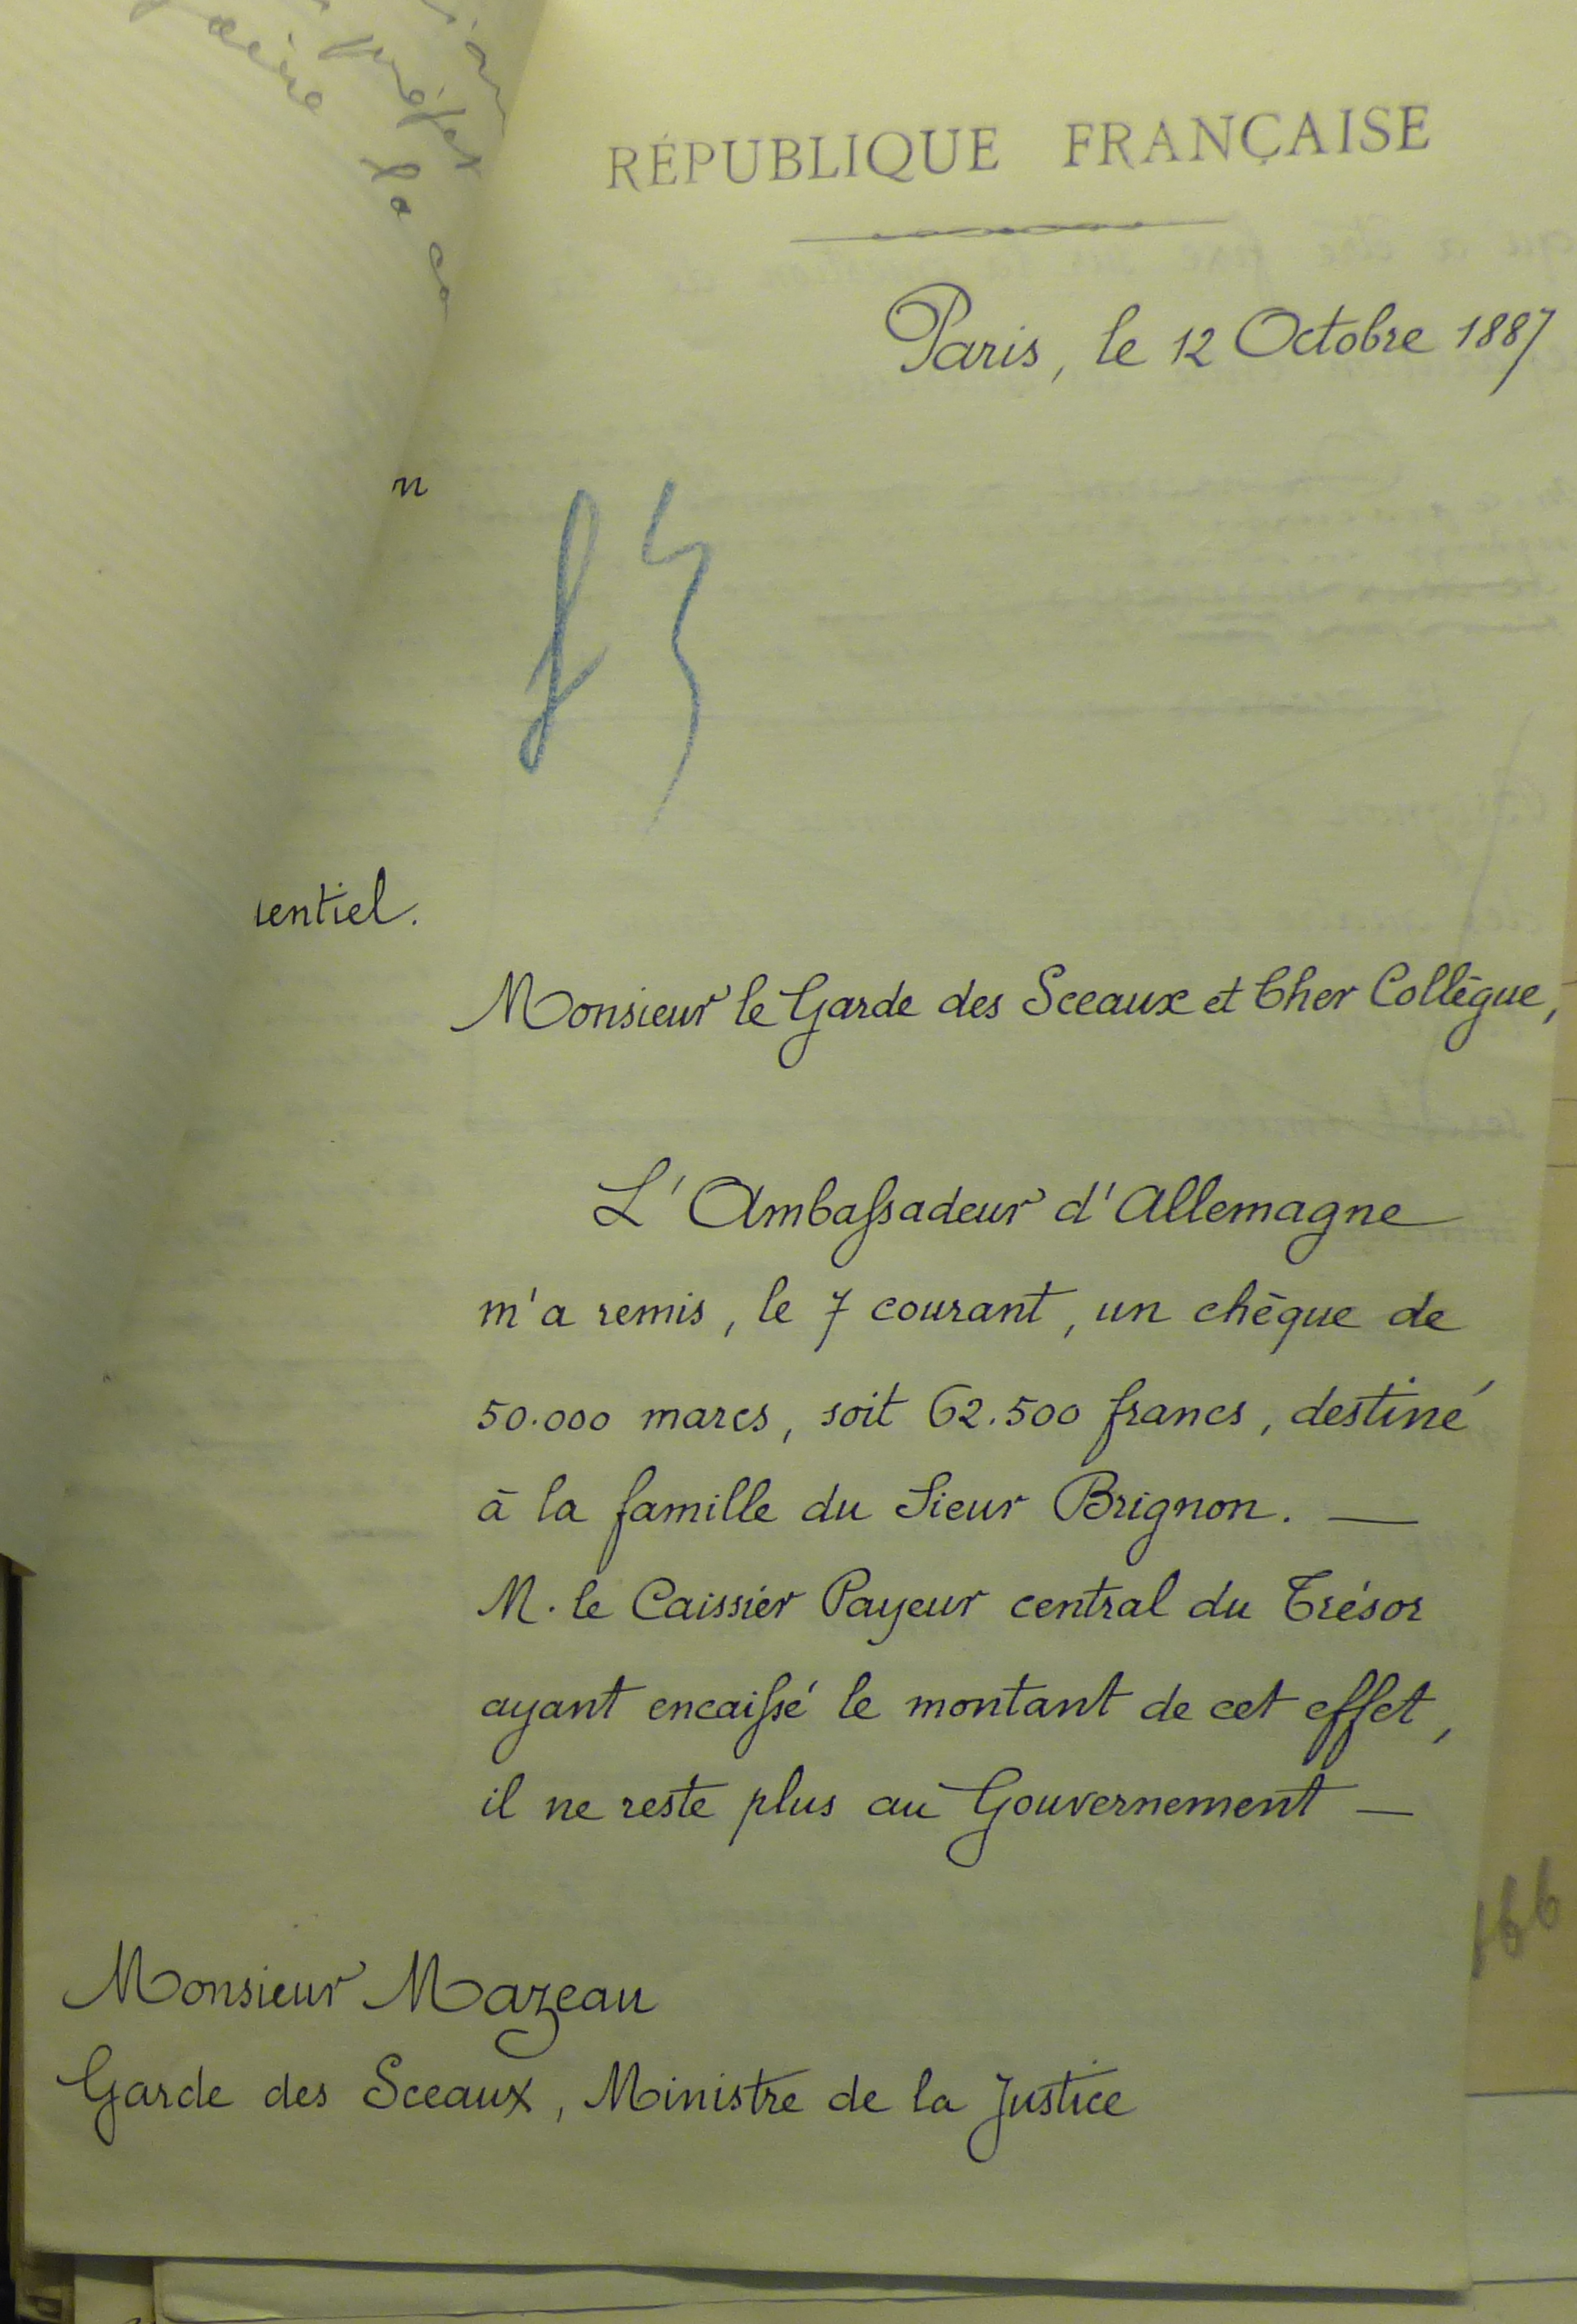 RÉPUBLIQUE FRANÇAISE
Paris, le 12 Octobre 1887
n
entiel.
Monsieur le Garde des Sceaux et Cher Collègue,
L'Ambassadeur d'Allemagne
m'a remis, le 7 courant, un chèque de
50.000 marcs, soit 62.500 francs, destiné
à la famille du Sieur Brignon. —
M. le Caissier Payeur central du Trésor
ayant encaissé le montant de cet effet,
il ne reste plus au Gouvernement —
166
Monsieur Mazeau
Garde des Sceaux, Ministre de la Justice